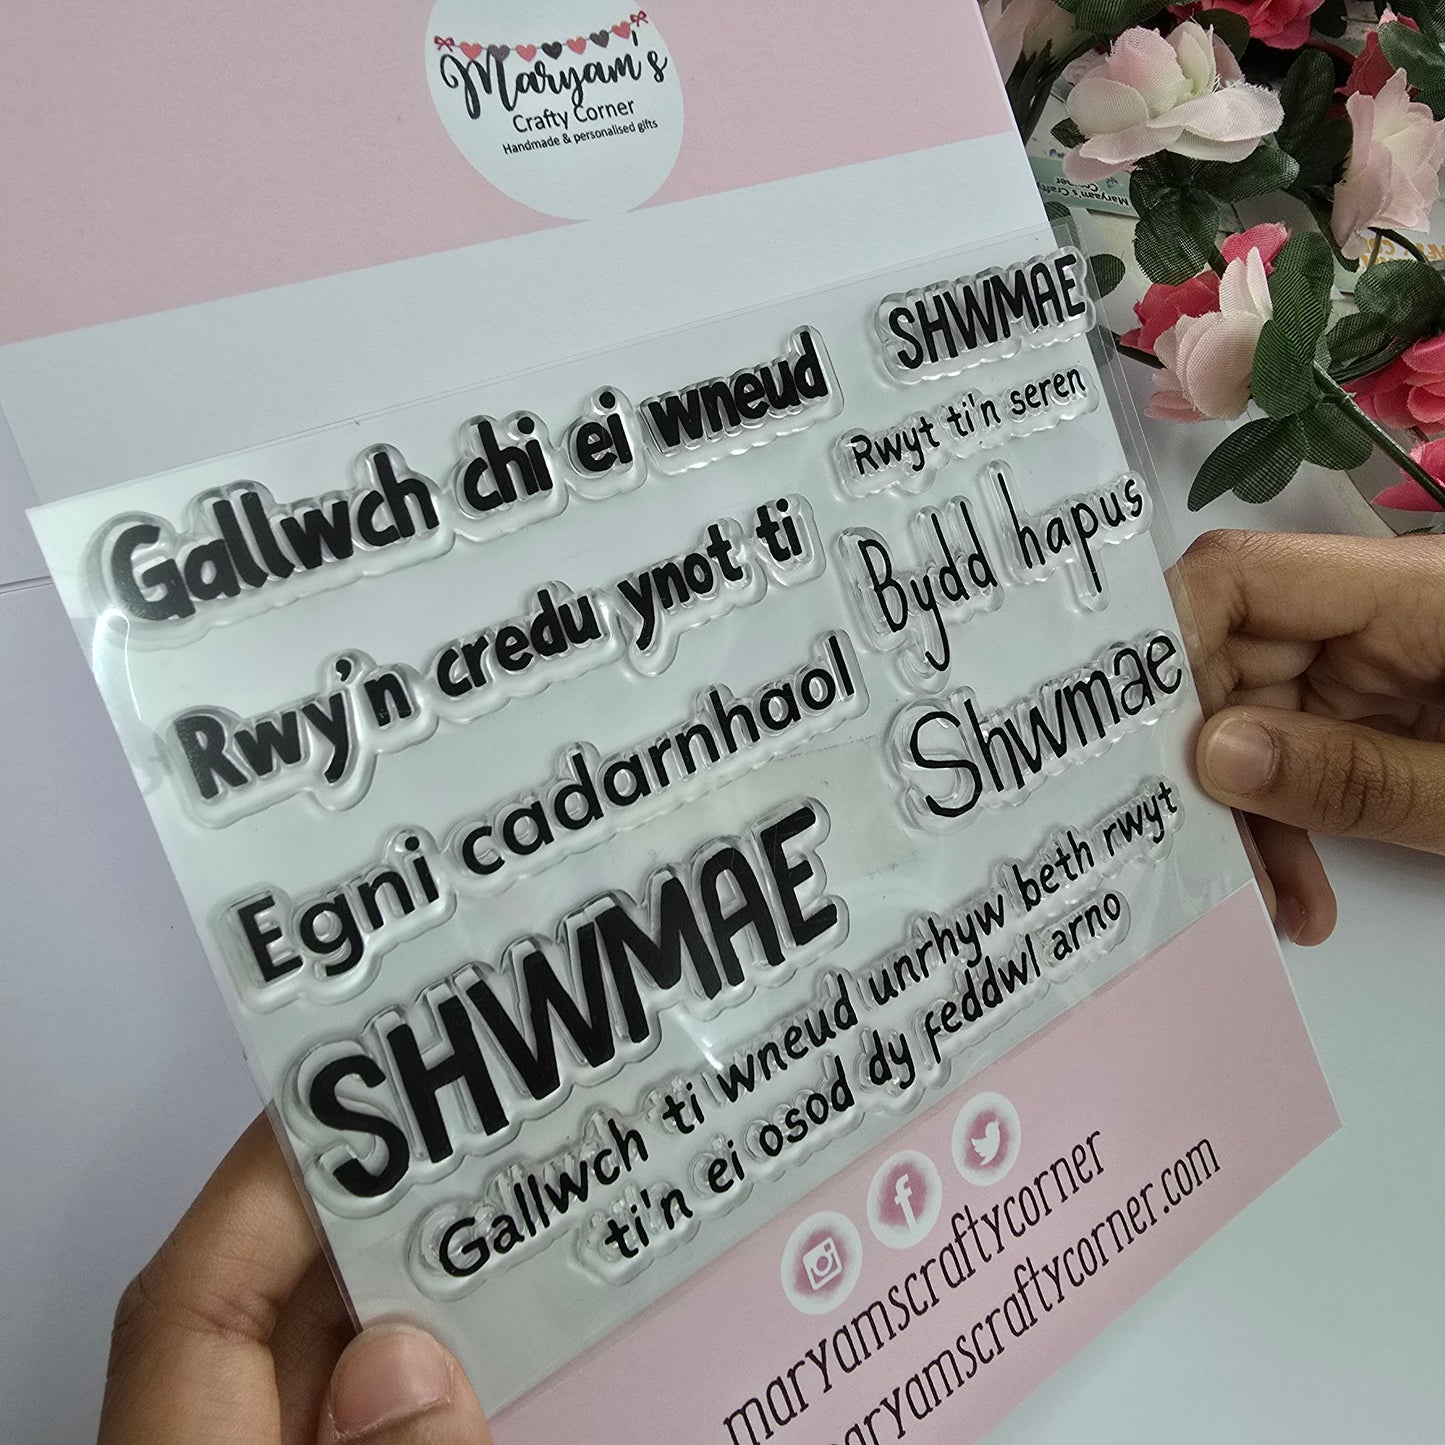 Maryam's
Crafty Corner
Handmade & personalised gifts
Gallwch chi ei wneud
Rwy'n credu ynot ti
Egni cadarnhaol
SHWMAE
SHWMAE
Rwyt ti'n seren
Bydd hapus
Shwmae
Gallwch ti wneud unrhyw beth rwyt
ti'n ei osod dy feddwl arno
maryamscraftycorner
maryamscraftycorner.com
Maryam's Crafty
Corner